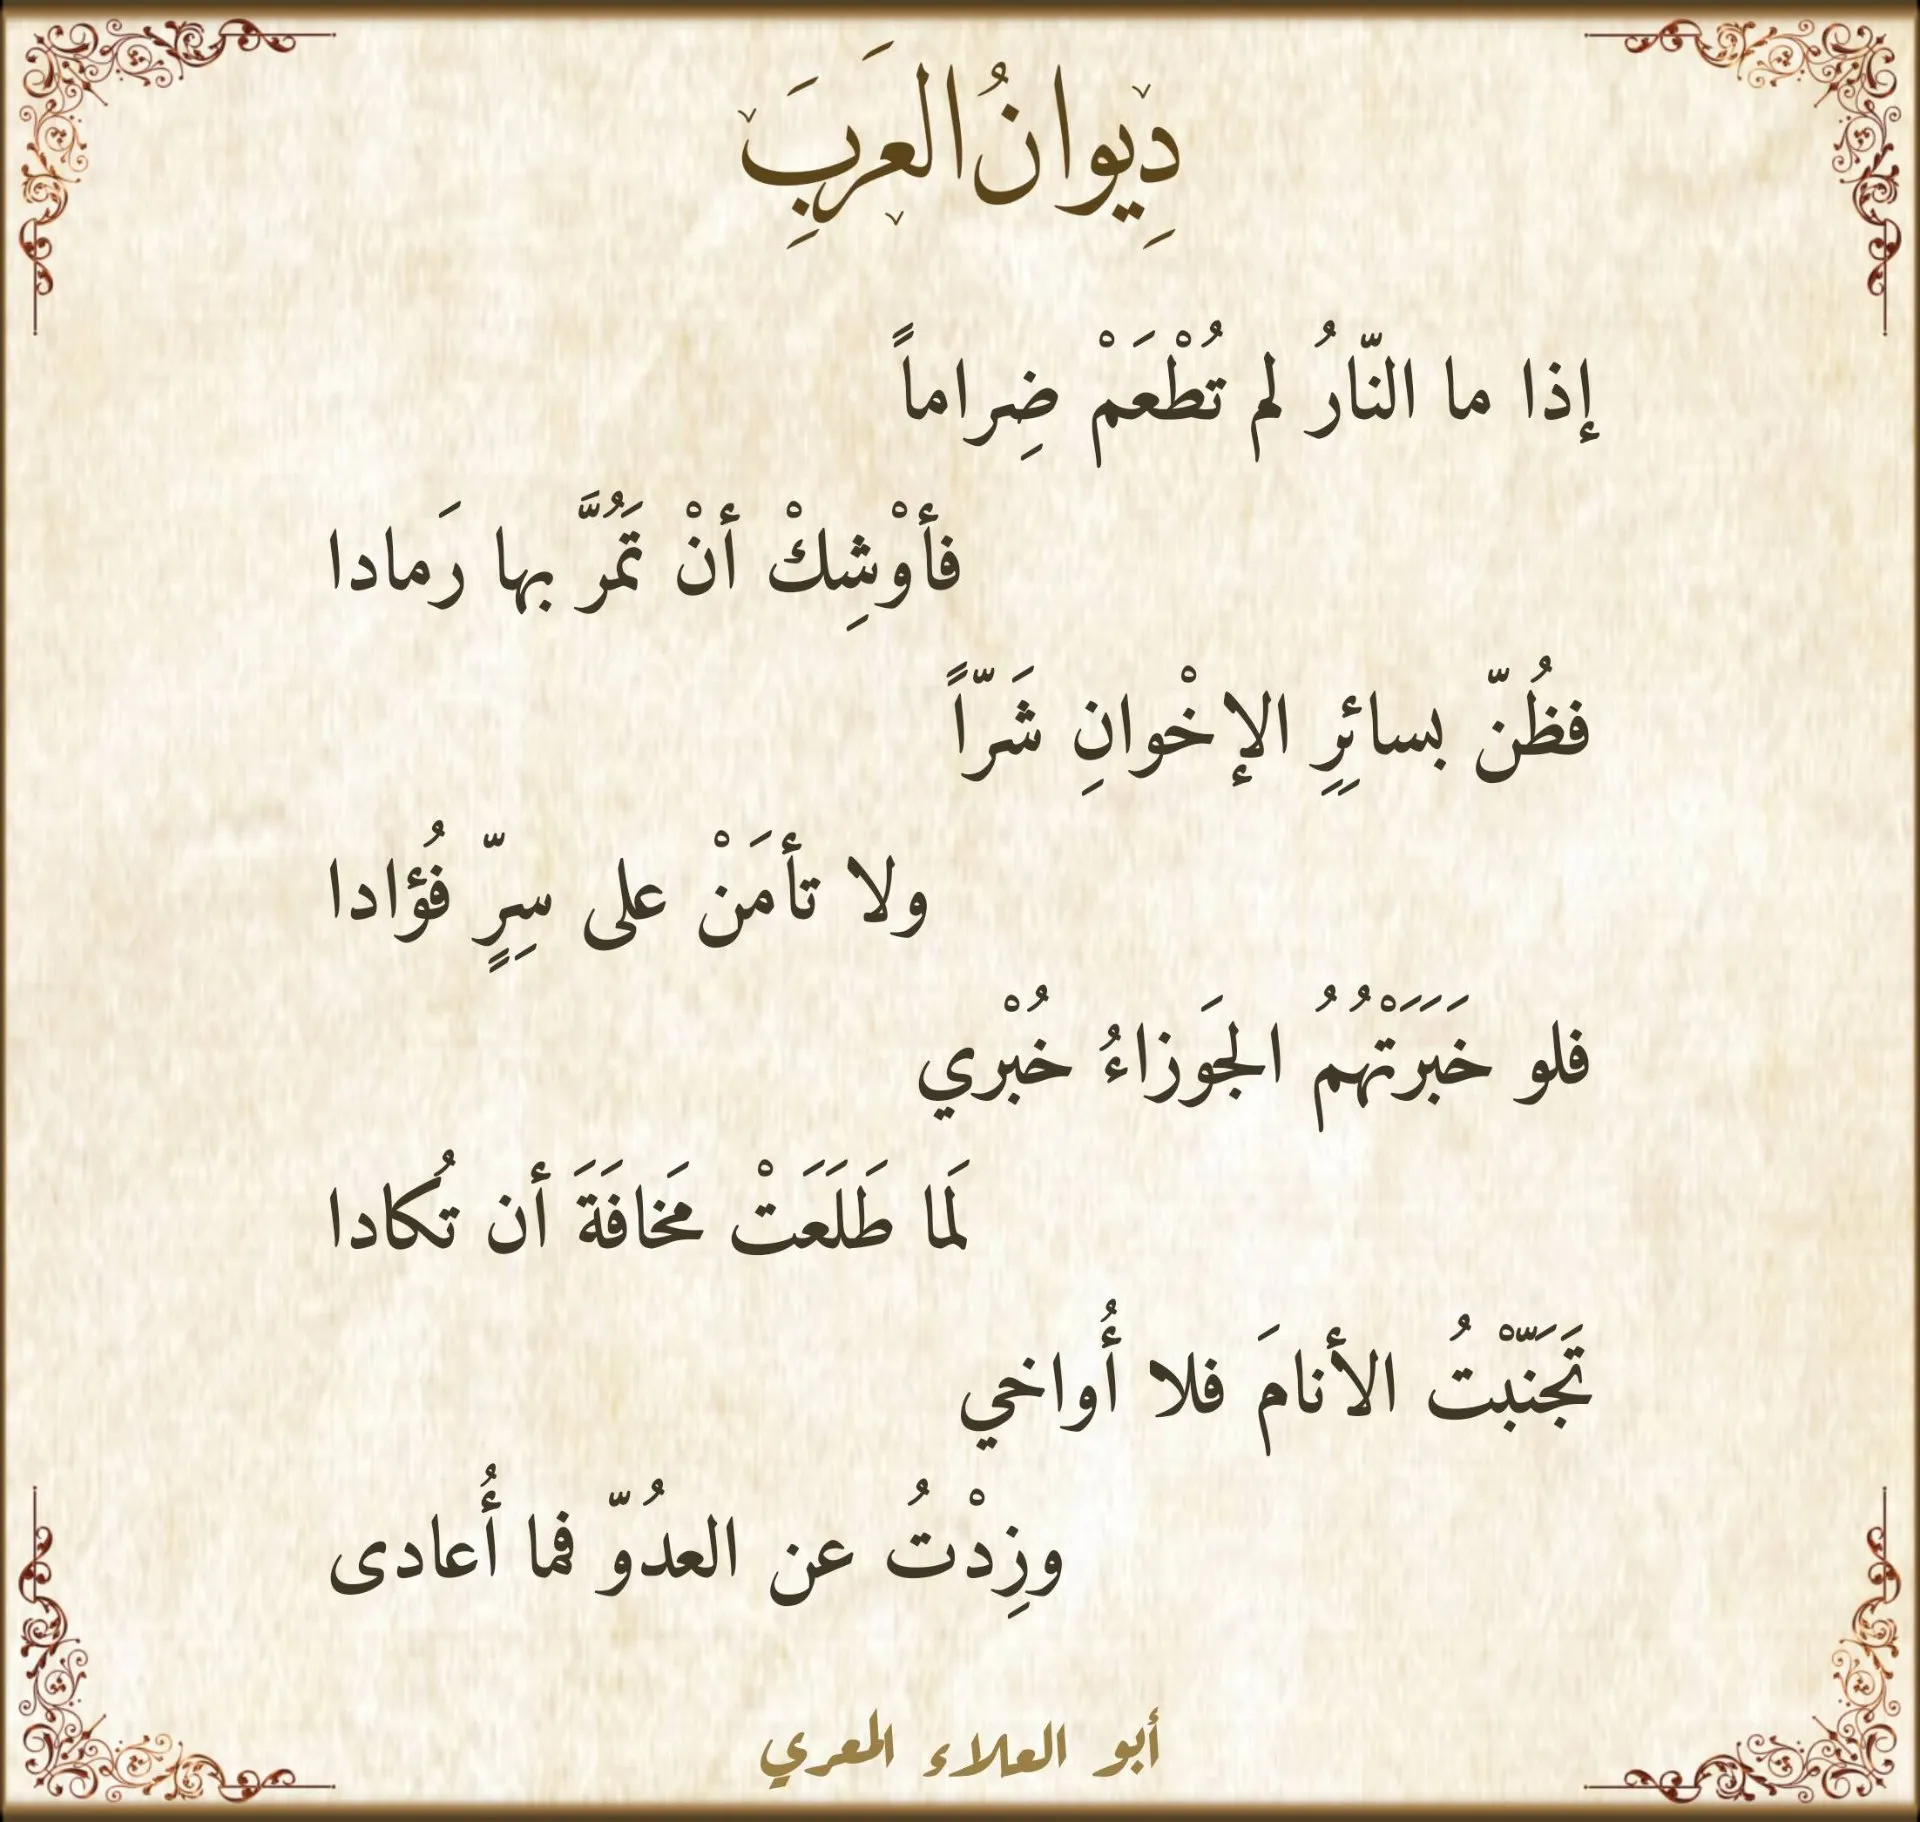 دِيوانُ العَربَِ
إذا ما النّارُ لم تُطْعَمْ ضِراماً
فأوْشِكْ أنْ تَمُرَّ بها رَمادا
فظُنّ بسائرٍ الإخْوانِ شَرّاً
ولا تأمَنْ على سِرٍّ فُؤادا
فلو خَبَرَتْهُمُ الجَوزاءُ خُبْري
لَما طَلَعَتْ مَخافَةَ أن تُكادا
تَجَنّبْتُ الأنامَ فلا أُواخي
وزِدْتُ عن العدُوّ فما أُعادى
أبو العلاء المعري